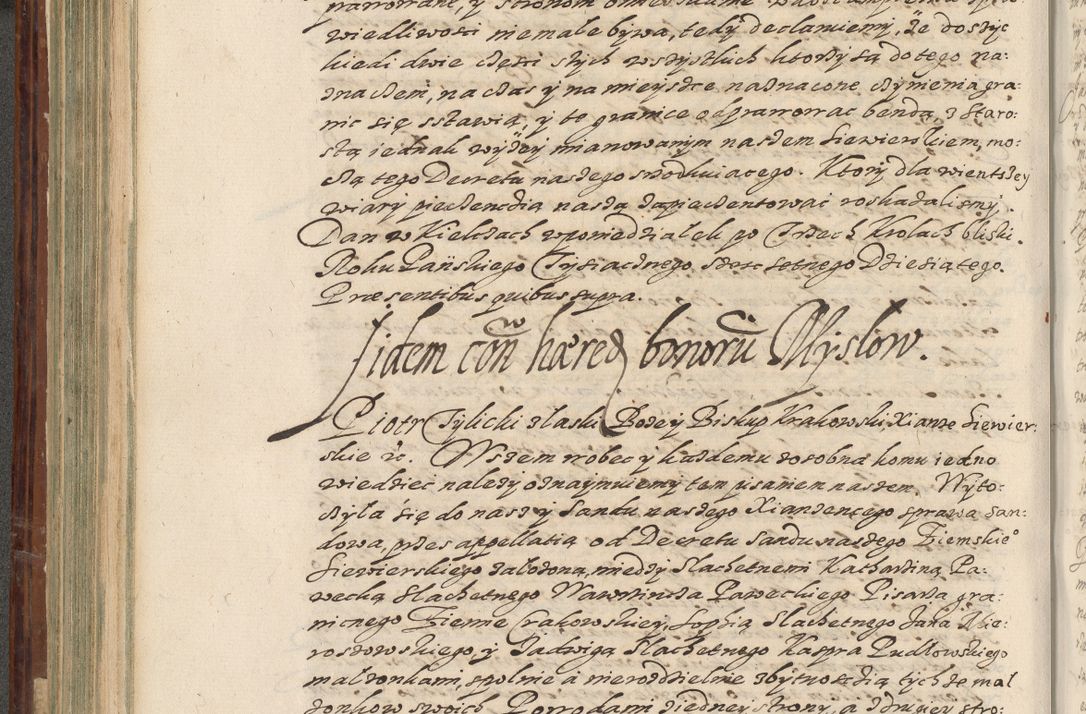 wiedliwości niemałe bywa, tedy declaruiemy, że doszyc
kiedi dwie części z tych wszystkich ktorzy są do tego na:
znaczeni, na czas y na mieysce naznaczone czynienia gra:
nic się zstawią, y te granice odprawowac bendą, z Staro:
stą iednak wyżey mianowanym naszem Siewierskiem, mo:
czą tego Decretu naszego skodkuiacego. Ktory dla wientszey
wiary pieczencią naszą zapieczentować roskazalismy.
Dan w Kielczach w poniedziałek po Trzech Krolach bliski.
Roku Pańskiego Tysiącznego szesc setnego Dziesiątego.
Præsentibus quibus supra.
Iidem coñ hæred bonorũ Myslow.
Piotr Tylicki z łaski Bożey Biskup Krakowski Xianże Siewier:
skie &c. Wszem wobec y każdemu zosobna komu iedno
wiedziec należy oznaymuiemy tem pisaniem naszem. Wyto:
czyła się do nas y Sandu naszego Xianżencego sprawa San:
dowa, przes appellatią od Decretu Sandu naszego Ziemskie°
Siewierskiego założoną, miedzy Slachetnemi Katharziną Pa:
wecką Slachetnego Wawrzincza Paweckiego Pisarza gra:
nicznego Ziemie Crakowskiey, Sophią Slachetnego Jana Mie:
roszowskiego, y Jadwigą Slachetnego Kaspra Pudłowskiego
małzonkami, spolnie a nierozdzielnie zbytnoscią tych że mał
żonkow swoich Powodami z iedney strony, a z drugiey stro: